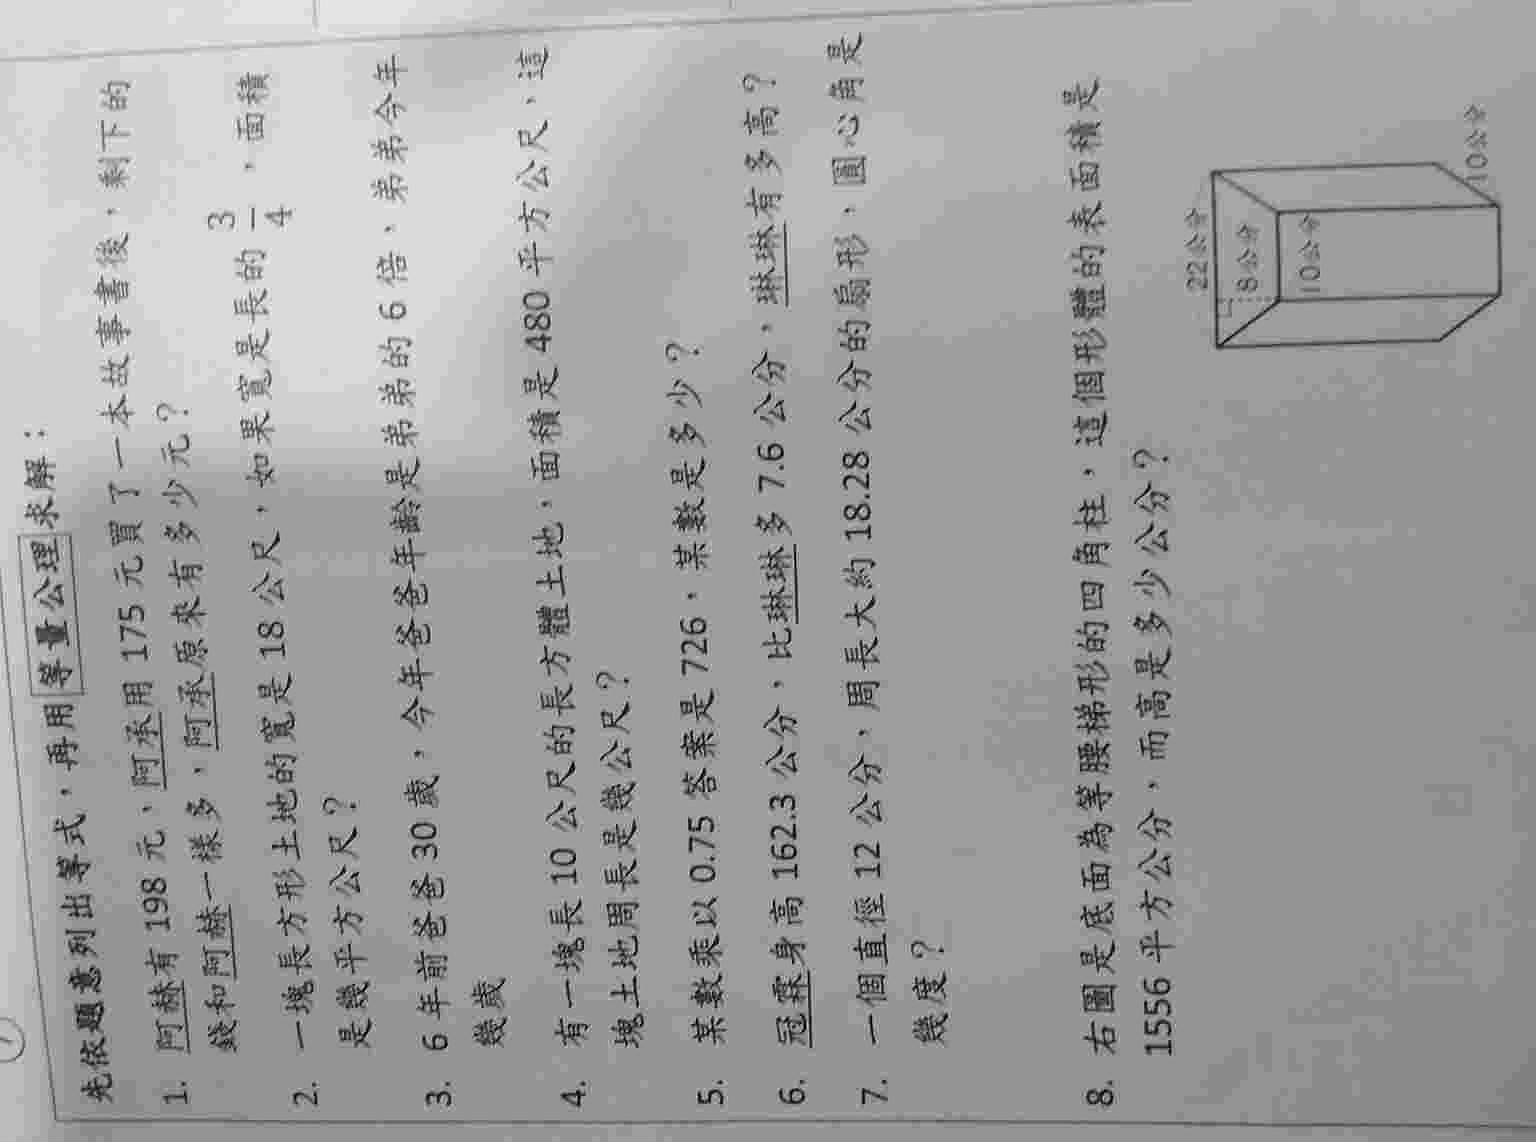 先依題意列出等式，再用等量公理求解：
1. 阿赫有 198 元，阿承用 175 元買了一本故事書後，剩下的
錢和阿赫一樣多，阿承原來有多少元？
2. 一塊長方形土地的寬是 18 公尺，如果寬是長的 3/4 ，面積
是幾平方公尺？
3. 6 年前爸爸 30 歲，今年爸爸年齡是弟弟的 6 倍，弟弟今年
幾歲
4. 有一塊長 10 公尺的長方體土地，面積是 480 平方公尺，這
塊土地周長是幾公尺？
5. 某數乘以 0.75 答案是 726，某數是多少？
6. 冠霖身高 162.3 公分，比琳琳多 7.6 公分，琳琳有多高？
7. 一個直徑 12 公分，周長大約 18.28 公分的扇形，圓心角是
幾度？
8. 右圖是底面為等腰梯形的四角柱，這個形體的表面積是
1556 平方公分，而高是多少公分？
22公分
8公分
10公分
10公分